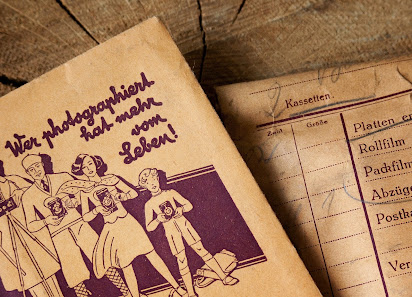 Wer photographiert
hat mehr
vom
Leben!
Kassetten
Zahl
Größe
Platten
Rollfilm
Packfilm
Abzüg
Postka